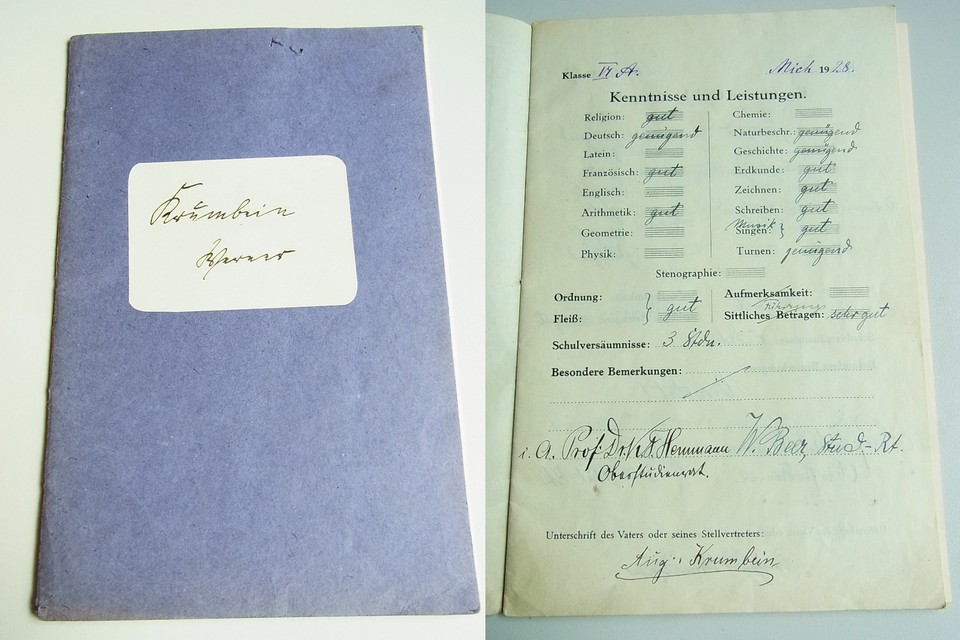 Krumbein
Werner
Klasse VI A. Mich 1928.
Kenntnisse und Leistungen.
Religion: gut
Deutsch: genügend
Latein:
Französisch: gut
Englisch:
Arithmetik: gut
Geometrie:
Physik:
Chemie:
Naturbeschr.: genügend
Geschichte: genügend
Erdkunde: gut
Zeichnen: gut
Schreiben: gut
Musik
Singen: } gut
Turnen: genügend
Stenographie:
Ordnung:
Fleiß: } gut
Aufmerksamkeit:
Führung
Sittliches Betragen: sehr gut
Schulversäumnisse: 3 Stdn.
Besondere Bemerkungen:
i. A. Prof. Dr. Herrmann W. Beer, Stud-Rt.
Oberstudienrat.
Unterschrift des Vaters oder seines Stellvertreters:
Aug. Krumbein